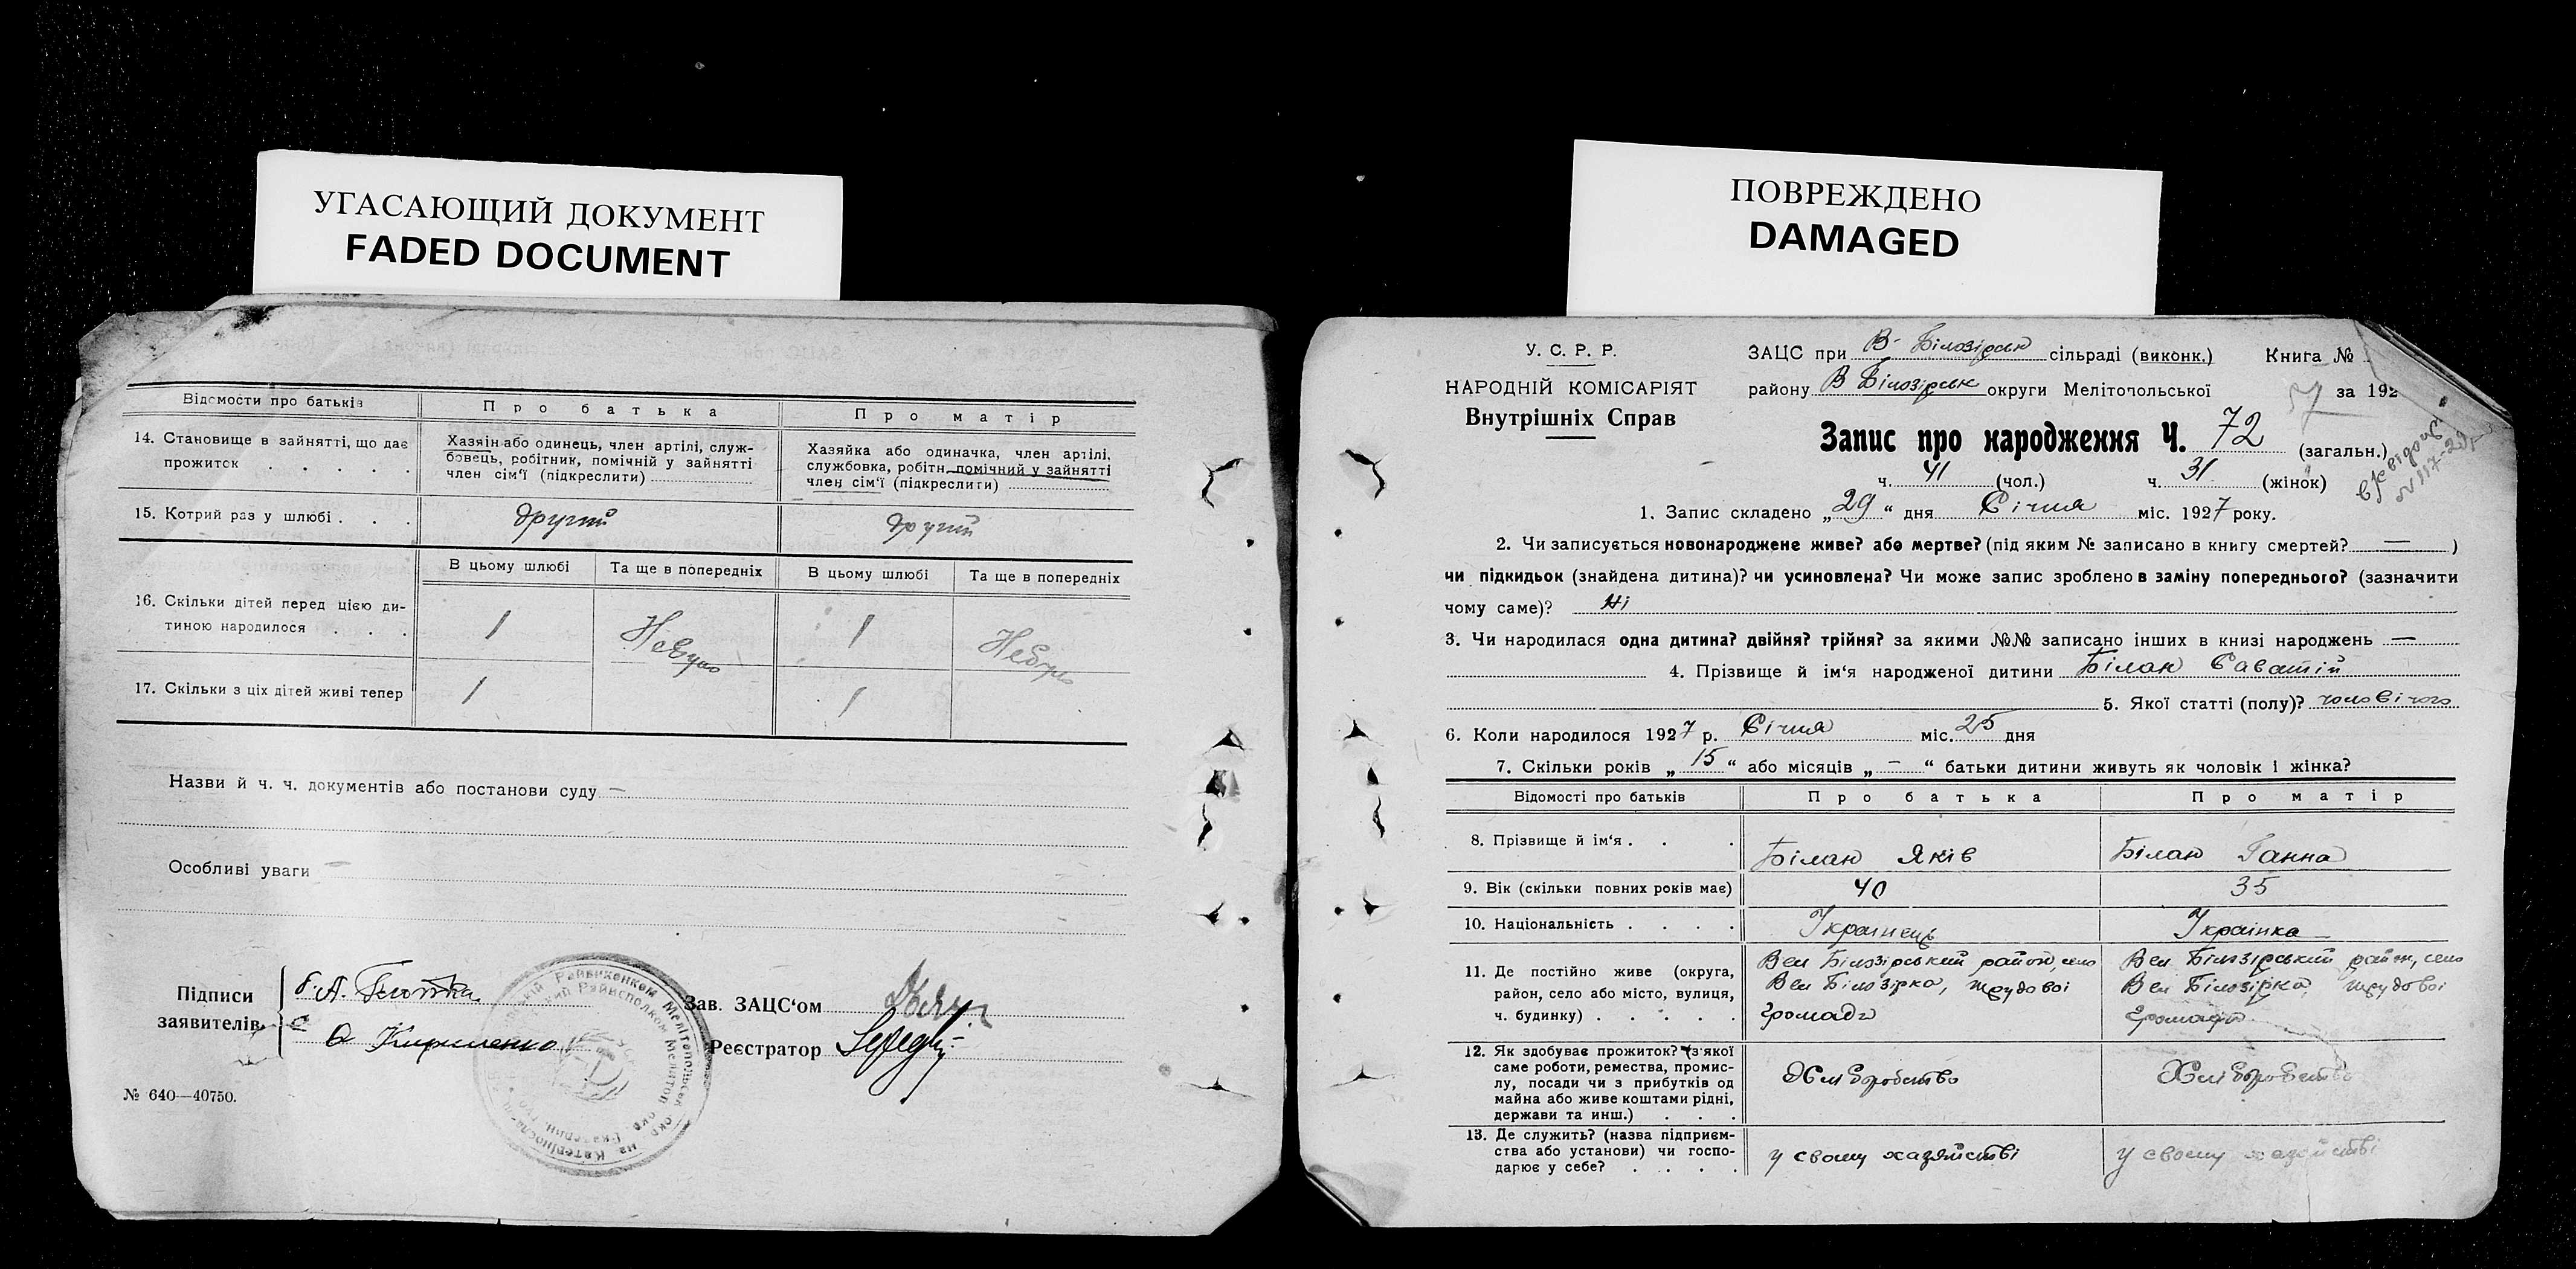 УГАСАЮЩИЙ ДОКУМЕНТ
FADED DOCUMENT
Відомости про батьків
Про батька
Про матір
14. Становище в зайнятті, що дає прожиток . . . . .
Хазяін або одинець, член артілі, служ-
бовець, робітник, помічній у зайнятті
член сім'ї (підкреслити)
Хазяйка або одиначка, член артілі,
службовка, робітн. помічний у зайнятті
член сім'ї (підкреслити)
15. Котрий раз у шлюбі . . .
другий
другий
В цьому шлюбі
Та ще в попередніх
В цьому шлюбі
Та ще в попередніх
16. Скільки дітей перед цією ди-
тиною народилося . . .
1
Небуло
1
Небуло
17. Скільки з ціх дітей живі тепер
1
1
Назви й ч. ч. документів або постанови суду —
Особливі уваги —
Підписи
заявителів
Кириленко
Зав. ЗАЦС'ом
Реєстратор
№ 640—40750.
ПОВРЕЖДЕНО
DAMAGED
У. С. Р. Р.
НАРОДНІЙ КОМІСАРІЯТ
Внутрішніх Справ
ЗАЦС при В-Білозірськ сільраді (виконк.)
Книга №
району В Білозірськ округи Мелітопольської
за 192
Запис про народження Ч. 72 (загальн.)
ч. 41 (чол.) ч. 31 (жінок)
1. Запис складено „29“ дня Січня міс. 1927 року.
2. Чи записується новонароджене живе? або мертве? (під яким № записано в книгу смертей? — )
чи підкидьок (знайдена дитина)? чи усиновлена? Чи може запис зроблено в заміну попереднього? (зазначити
чому саме)? Ні
3. Чи народилася одна дитина? двійня? трійня? за якими №№ записано інших в книзі народжень —
4. Прізвище й ім'я народженої дитини Білан Саватій
5. Якої статті (полу)? чоловічого
6. Коли народилося 1927 р. Січня міс. 25 дня
7. Скільки років „15“ або місяців „—“ батьки дитини живуть як чоловік і жінка?
Відомості про батьків
Про батька
Про матір
8. Прізвище й ім'я . . .
Білан Яків
Білан Ганна
9. Вік (скільки повних років має)
40
35
10. Національність . . . .
Українець
Українка
11. Де постійно живе (округа,
район, село або місто, вулиця,
ч. будинку) . . . . .
Вел Білозірський район, село
Вел Білозірка, трудовоі
громади
Вел Білозірський район, село
Вел Білозірка, трудовоі
громади
12. Як здобуває прожиток? (з якої
саме роботи, ремества, промис-
лу, посади чи з прибутків од
майна або живе коштами рідні,
держави та инш.) . . .
Хліборобство
Хліборобство
13. Де служить? (назва підприєм-
ства або установи) чи госпо-
дарює у себе? . . . .
у свому хазяйстві
у своему хазяйстві